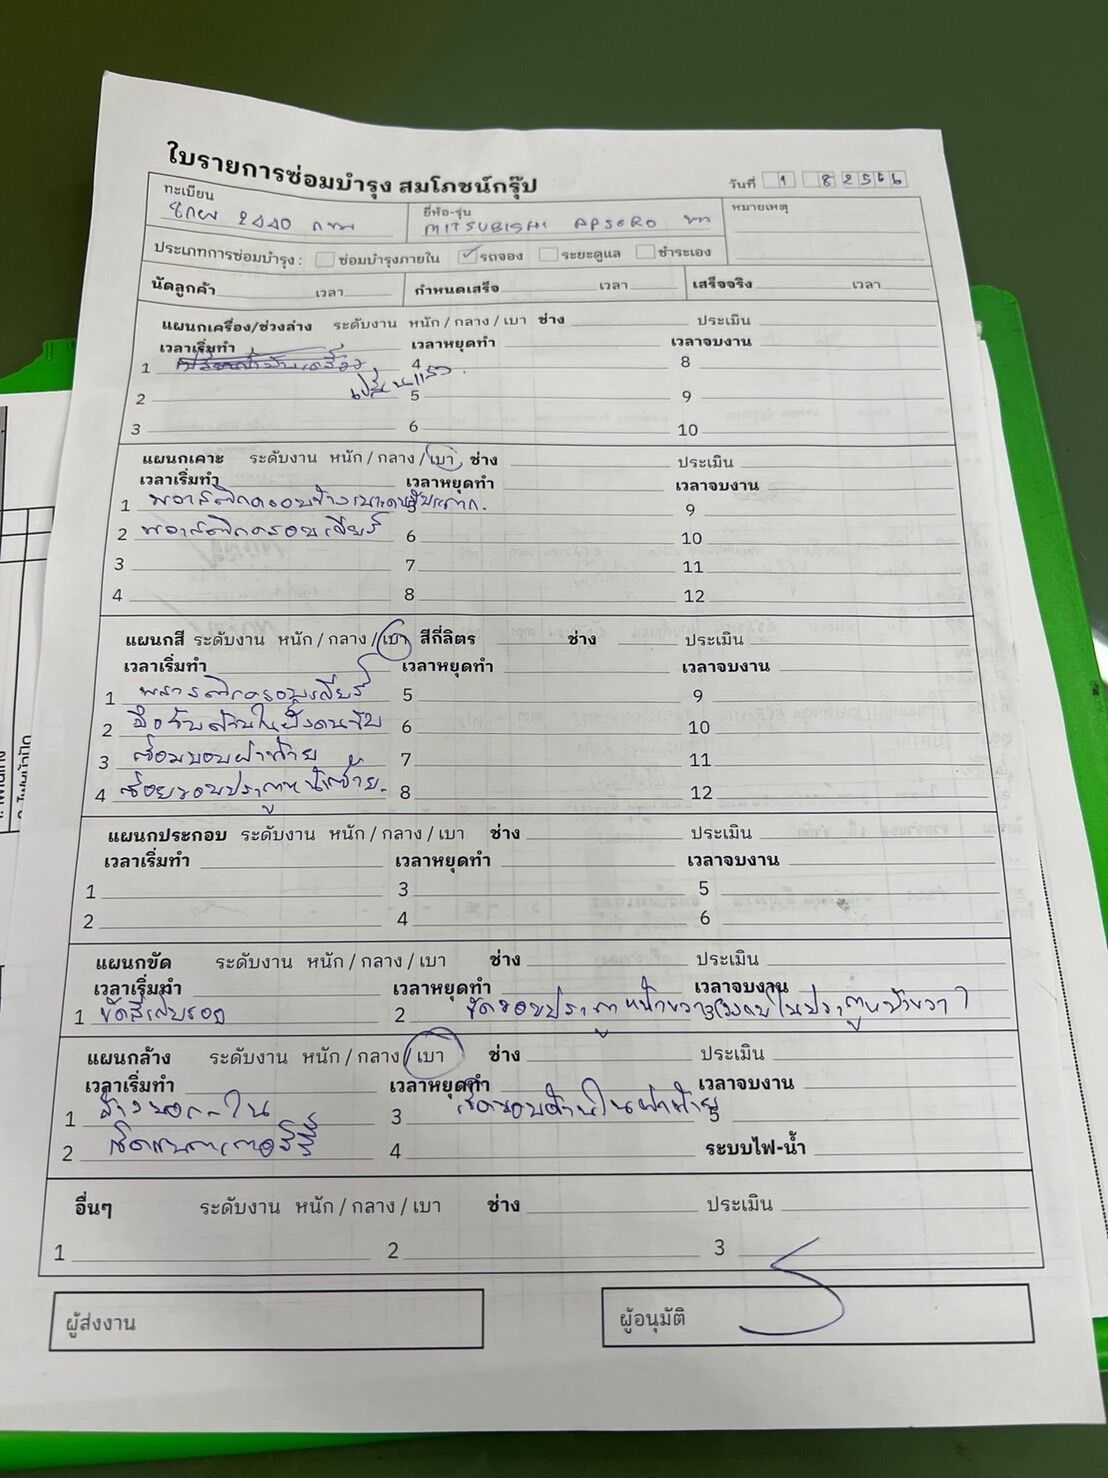 ใบรายการซ่อมบำรุง สมโภชน์กรุ๊ป
วันที่ 1 8 2566
ทะเบียน
2440 กทม
ยี่ห้อ-รุ่น
MITSUBISHI APSERO ขาว
หมายเหตุ
ประเภทการซ่อมบำรุง : ซ่อมบำรุงภายใน ✓ รถจอง ระยะดูแล ชำระเอง
นัดลูกค้า เวลา กำหนดเสร็จ เวลา เสร็จจริง เวลา
แผนกเครื่อง/ช่วงล่าง ระดับงาน หนัก / กลาง / เบา ช่าง ประเมิน
เวลาเริ่มทำ เวลาหยุดทำ เวลาจบงาน
1 4 8
2 เปลี่ยนแล้ว 5 9
3 6 10
แผนกเคาะ ระดับงาน หนัก / กลาง / เบา ช่าง ประเมิน
เวลาเริ่มทำ เวลาหยุดทำ เวลาจบงาน
1 9
2 พลาสติกครอบเกียร์ 6 10
3 7 11
4 8 12
แผนกสี ระดับงาน หนัก / กลาง / เบา สีกี่ลิตร ช่าง ประเมิน
เวลาเริ่มทำ เวลาหยุดทำ เวลาจบงาน
1 พลาสติกครอบเกียร์ 5 9
2 มือจับด้านในฝั่งคนขับ 6 10
3 ขอบฝาท้าย 7 11
4 ขอบประตูหน้าซ้าย 8 12
แผนกประกอบ ระดับงาน หนัก / กลาง / เบา ช่าง ประเมิน
เวลาเริ่มทำ เวลาหยุดทำ เวลาจบงาน
1 3 5
2 4 6
แผนกขัด ระดับงาน หนัก / กลาง / เบา ช่าง ประเมิน
เวลาเริ่มทำ เวลาหยุดทำ เวลาจบงาน
1 ขัดสี 2 ขัดขอบประตูหน้าขวา 3
แผนกล้าง ระดับงาน หนัก / กลาง / เบา ช่าง ประเมิน
เวลาเริ่มทำ เวลาหยุดทำ เวลาจบงาน
1 ล้างนอก-ใน 3 เช็ดขอบด้านในฝาท้าย 5
2 เช็ดแบตเตอรี่ 4 ระบบไฟ-น้ำ
อื่นๆ ระดับงาน หนัก / กลาง / เบา ช่าง ประเมิน
1 2 3
ผู้ส่งงาน ผู้อนุมัติ